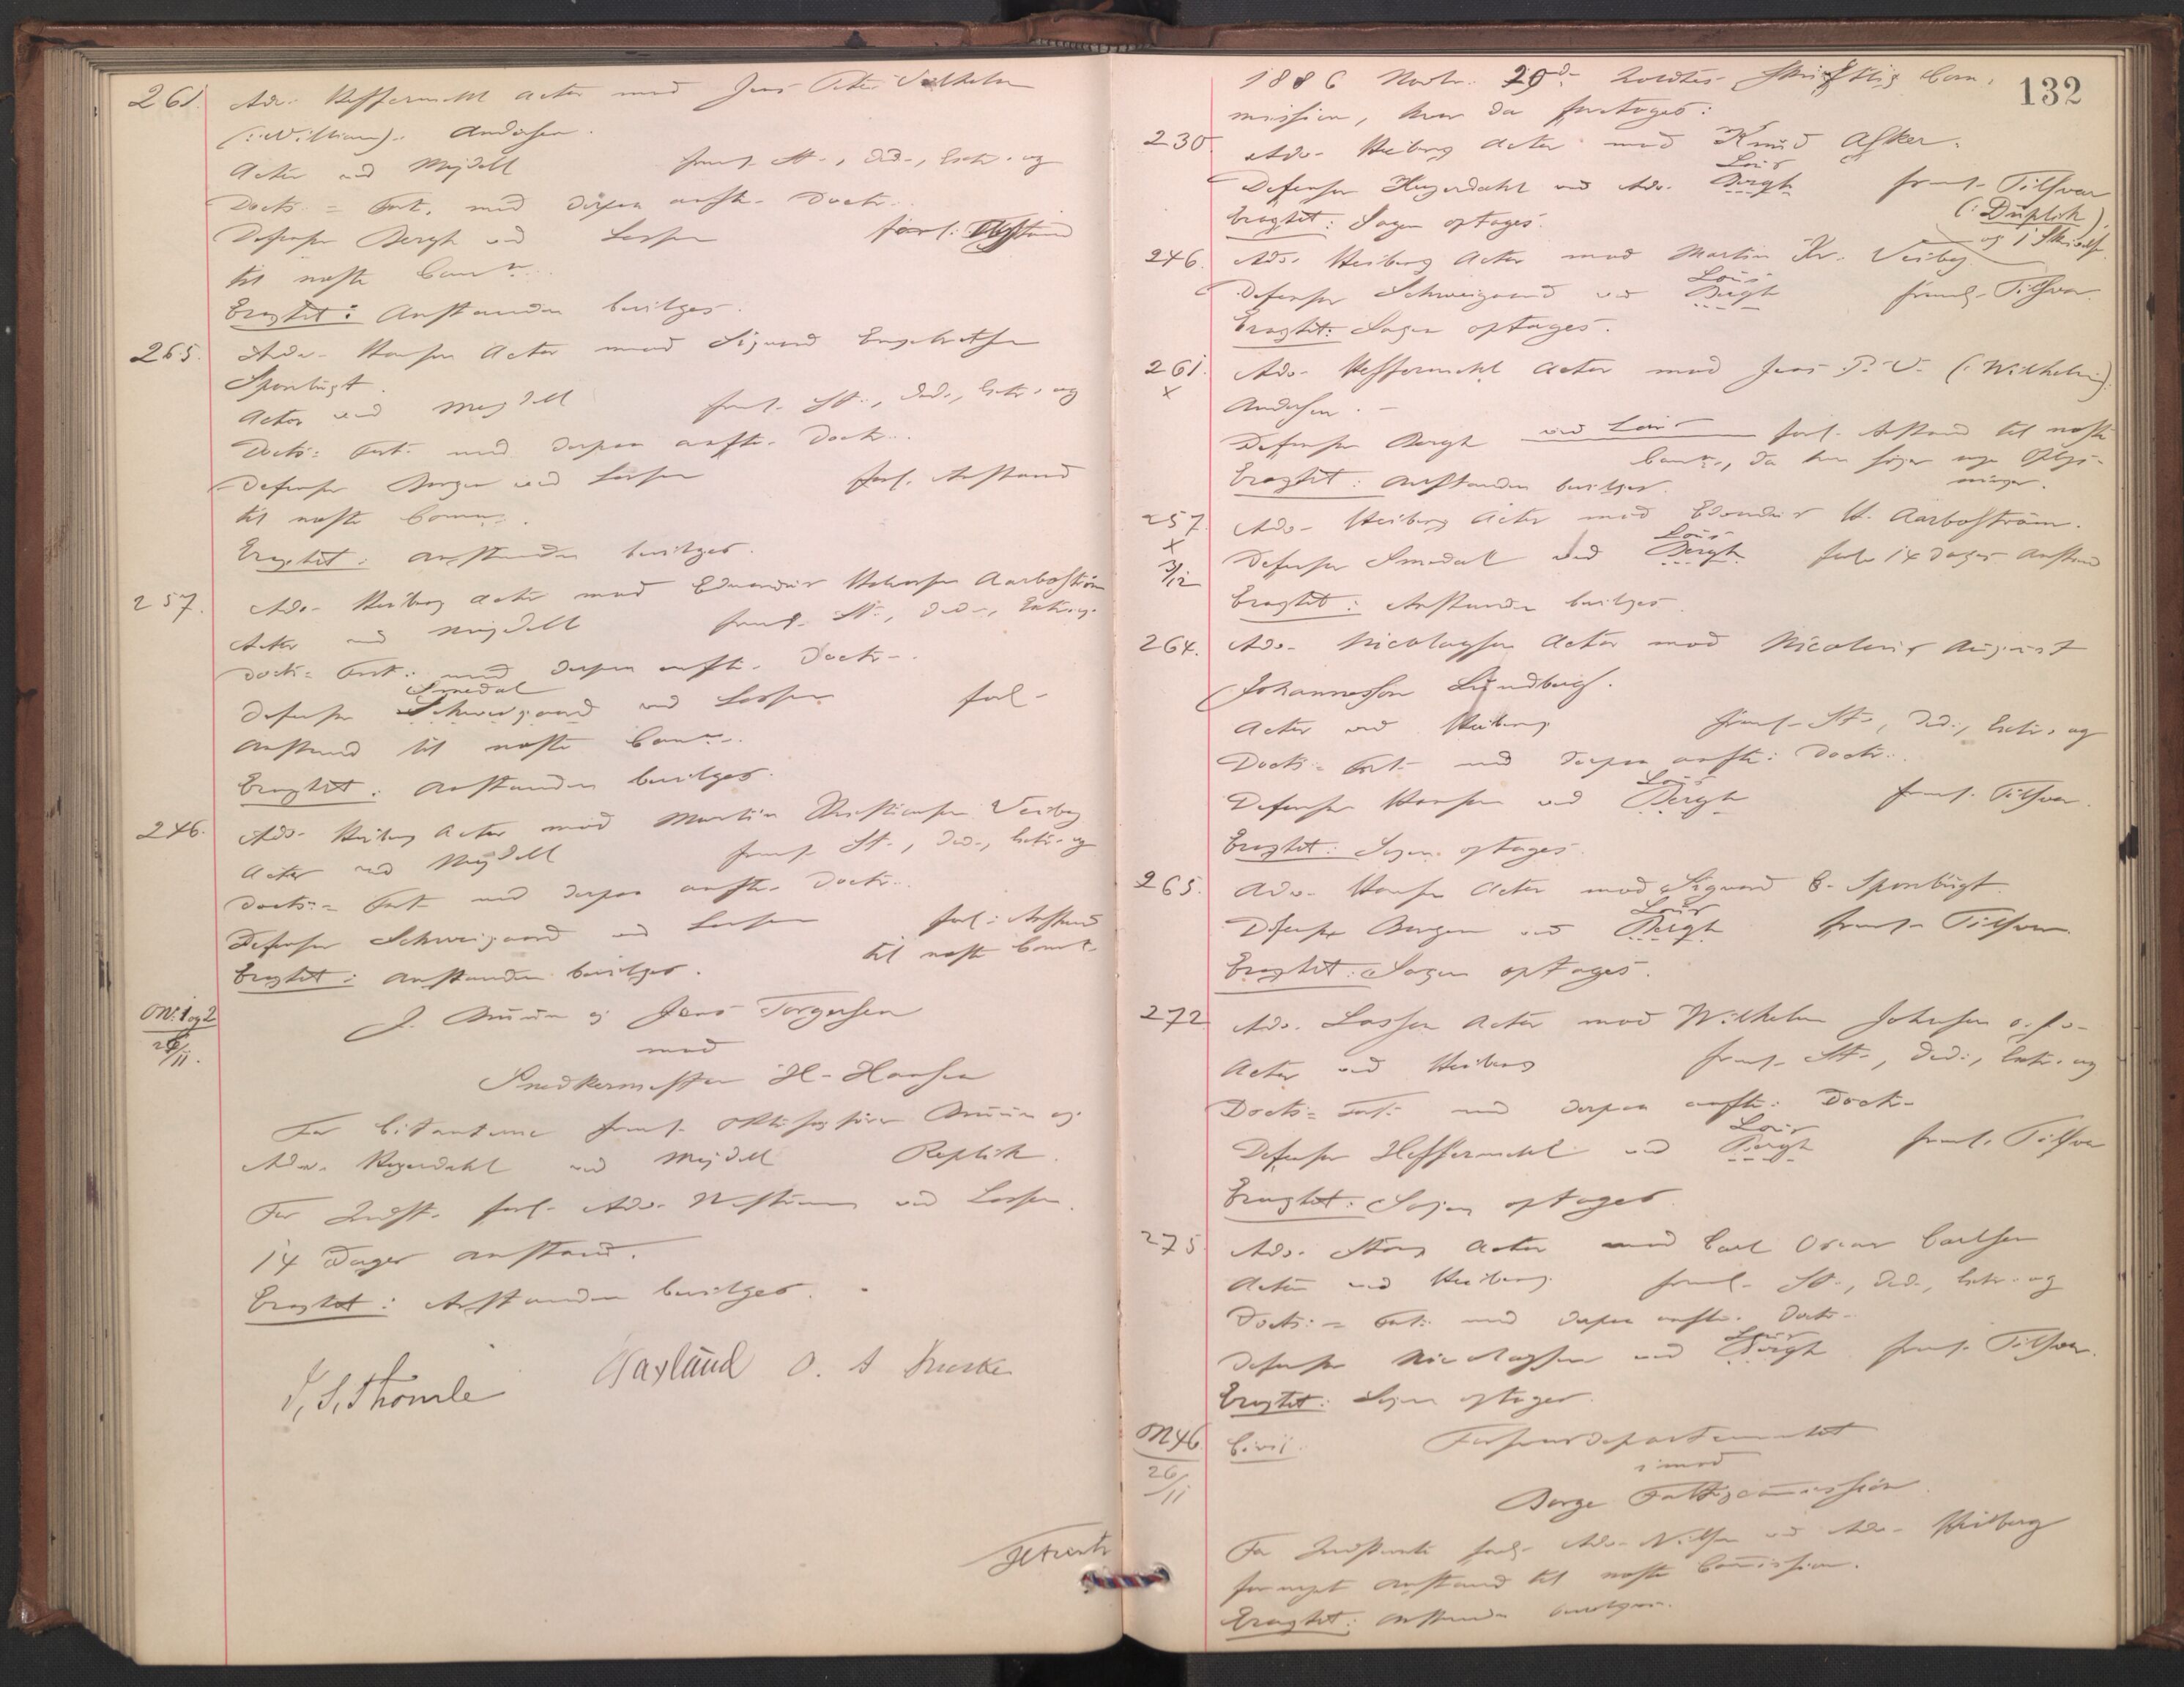 261. Adv. Heffermehl Actor mod Jens Peter Vilhelm
(: William). Andersen.
Actor ved Mejdell freml. St., Ded., Extr. og
Docts: = Fort. med derpaa anft. Doctr.
Defensor Bergh ved Lassen forl: Anstand
til næste Comm.
Eragtet: Anstanden bevilges.
265. Adv. Hansen Actor mod Sigvard Engebretsen
Sponbugt.
Actor ved Mejdell freml. St., Ded., Extr. og
Docts: Fort. med derpaa anft. Doctr.
Defensor Bergen ved Lassen forl. Anstand
til næste Comm.
Eragtet: Anstanden bevilges.
257. Adv. Heiberg Actor mod Edvardur Aarboström
Actor ved Mejdell freml. St., Ded., Extr. og
Docts = Fort. med derpaa anft. Doctr.
Smedal
Defensor Schweigaard ved Lassen forl.
Anstand til næste Comm.
Eragtet: Anstanden bevilges.
246. Adv. Heiberg Actor mod Martin Kristiansen Veiby
Actor ved Mejdell freml. St., Ded., Extr. og
Docts: = Fort. med derpaa anft. Doctr.
Defensor Schweigaard ved Lassen forl: Anstand
til næste Comm.
Eragtet: Anstanden bevilges.
ON: 1 og 2
26/11.
J. Bruun og Jens Torgersen
mod
Snedkermester H. Hansen
For Citanterne freml. Bruun og
Adv. Hagerdahl ved Mejdell Replik.
For Indst. forl. Adv. ved Lassen
14 Dages Anstand.
Eragtet: Anstanden bevilges.
J. S. Thomle O. A
132
1886 Novbr. 20de holdtes skriftlig Com-
mission, hvor da foretoges:
230. Adv. Heiberg Actor mod Knud Asker.
Lous
Defensor Hagerdahl ved Adv. Bergh freml. Tilsvar
(: Duplik)
og 1 Skrivelse
Eragtet: Sagen optages.
246. Adv. Heiberg Actor mod Martin Kr. Veiby
Lous
Defensor Schweigaard ved Bergh freml. Tilsvar.
Eragtet: Sagen optages.
261. Adv. Heffermehl Actor mod Jens P. V. (: Wilhelm)
x
Andersen. -
Defensor Bergh ved Lous forl. Anstand til næste
Comm., da han søger nye Oplys-
ninger.
Eragtet: Anstanden bevilges.
257. Adv. Heiberg Actor mod Edvardur H. Aarboström.
x
3/12
Lous
Defensor Smedal ved Bergh forl. 14 Dages Anstand
Eragtet: Anstanden bevilges.
264. Adv. Nicolaysen Actor mod Nicolaus August
Johannesson Lundberg.
Actor ved Heiberg freml. St., Ded., Extr. og
Docts: = Fort. med derpaa anft: Doctr.
Lous
Defensor Hansen ved Bergh freml. Tilsvar.
Eragtet: Sagen optages.
265. Adv. Hansen Actor mod Sigvard E. Sponbugt
Lous
Defensor Bergen ved Bergh freml. Tilsvar.
Eragtet: Sagen optages.
272 Adv. Lassen Actor mod Wilhelm Johnsen o. fl.
Actor ved Heiberg freml. St., Ded., Extr. og
Docts: = Fort. med derpaa anft: Doctr.
Lous
Defensor Heffermehl ved Bergh freml. Tilsvar
Eragtet: Sagen optages
275. Adv. Stang Actor mod Carl Oscar Carlsen
Actor ved Heiberg freml. St., Ded., Extr. og
Docts: = Fort. med derpaa anft. Doctr.
Lous
Defensor Nicolaysen ved Bergh freml. Tilsvar.
Eragtet: Sagen optages
ON 46.
26/11
Civil. Forsvarsdepartementet
imod
Borge Fattigcommission.
For Indstevnte forl. Adv. Nilsen ved Adv. Heiberg
fornyet Anstand til næste Commission.
Eragtet: Anstanden bevilges.